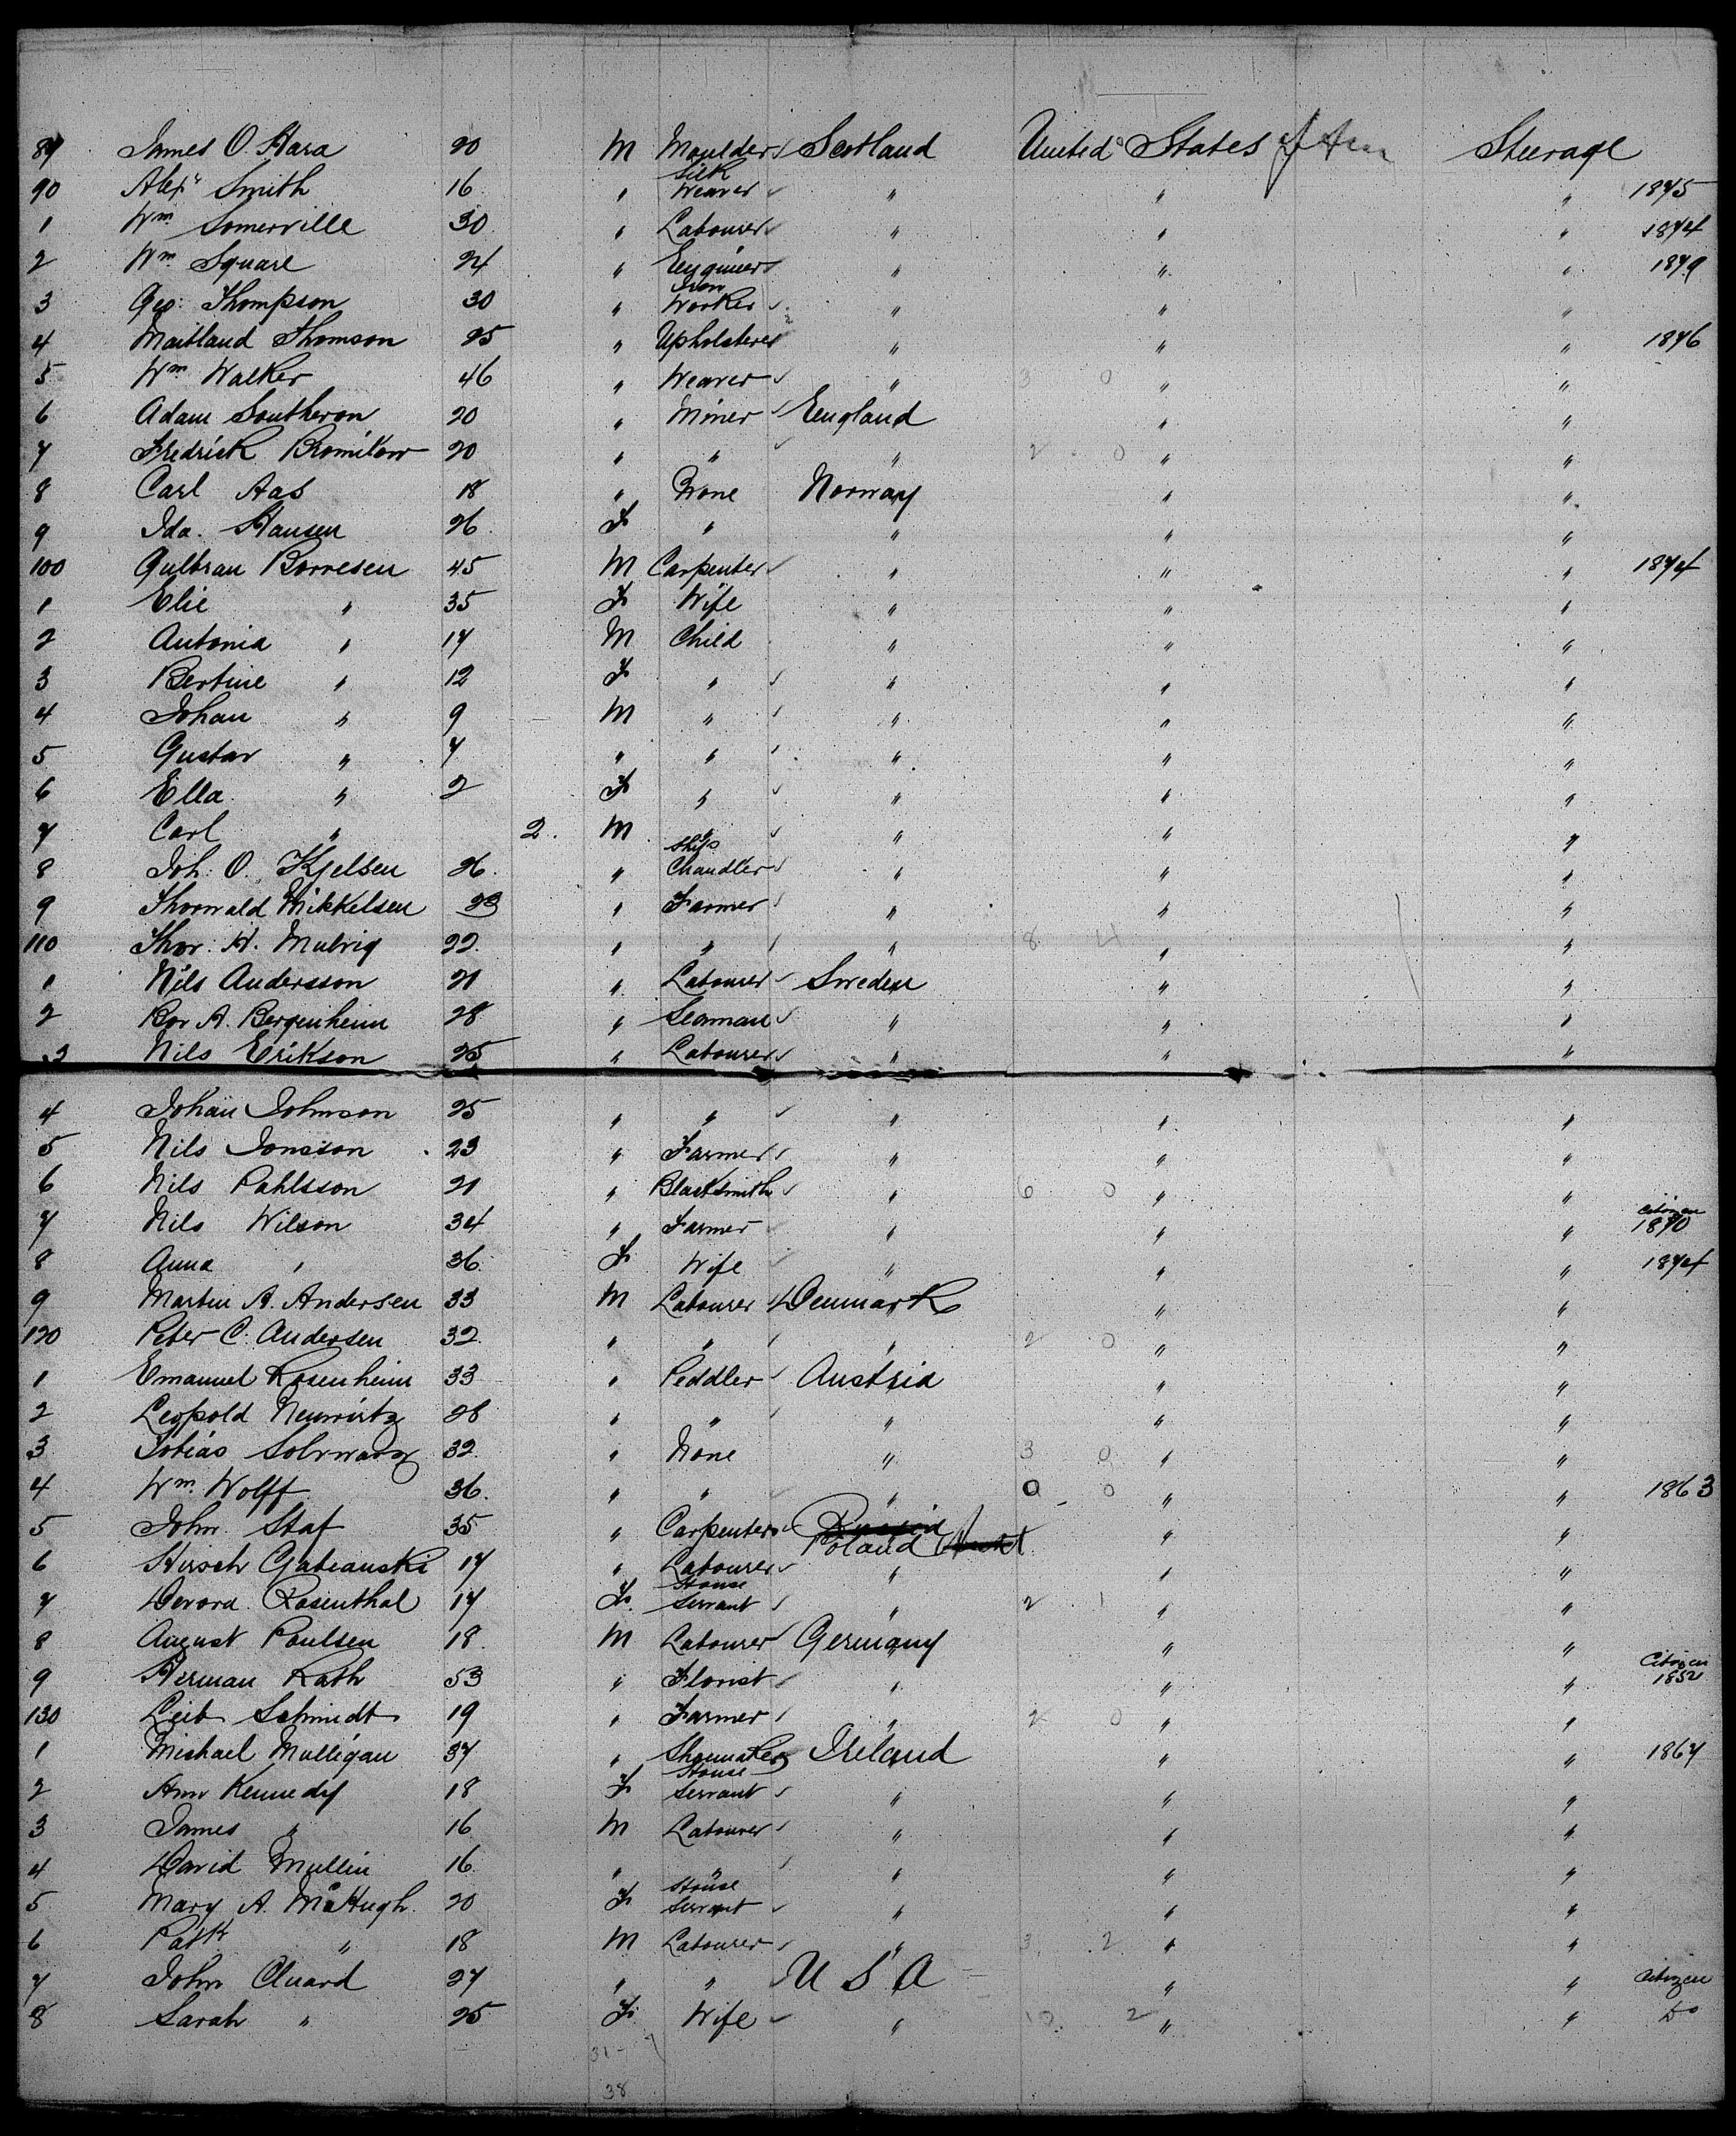 89 James O. Hara 20 M Moulder Scotland United States of Am Steerage
90 Alexr Smith 16 " Silk Weaver " " " 1875
1 Wm Somerville 30 " Labourer " " " 1874
2 Wm Square 24 " Engineer " " " 1879
3 Geo: Thompson 30 " Iron Worker " " "
4 Maitland Thomson 25 " Upholsterer " " " 1876
5 Wm Walker 46 " Weaver " 3 0 " "
6 Adam Southeron 20 " Miner England " "
7 Fredrick Bromilow 20 " " " 2 0 " "
8 Carl Aas 18 " None Norway " "
9 Ida. Hansen 26 F " " " "
100 Gulbran Borresen 45 M Carpenter " " " 1874
1 Elie " 35 F Wife " " "
2 Antonia " 17 M Child " " "
3 Bertine " 12 F " " " "
4 Johan " 9 M " " " "
5 Gustav " 7 " " " " "
6 Ella " 2 F " " " "
7 Carl " 2. M " " " "
8 Joh. O. Kjelsen 26 " Ships Chandler " " "
9 Thorwald Mikkelsen 23 " Farmer " " "
110 Thor. H. Mulvig 22 " " " 8 4 " "
1 Nils Andersson 21 " Labourer Sweden " "
2 Bor A. Bergenheim 28 " Seaman " " "
3 Nils Erikson 25 " Labourer " " "
4 Johan Johnson 25 " " " " "
5 Nils Jonsson 23 " Farmer " " "
6 Nils Pahlsson 21 " Blacksmith " 6 0 " "
7 Nils Wilson 34 " Farmer " " " Citizen 1870
8 Anna " 36 F Wife " " " 1874
9 Martin A. Andersen 33 M Labourer Denmark " "
120 Peter C. Andersen 32 " " " 2 0 " "
1 Emanuel Rosenheim 33 " Peddler Austria " "
2 Leopold Neuwirtz 28 " " " " "
3 Tobias Solrwarz 32 " None " 3 0 " "
4 Wm. Wolff 36 " " " 0 0 " " 1863
5 John Staf 35 " Carpenter Russia Poland " "
6 Hirsch Gabeanski 17 " Labourer " " "
7 Devora Rosenthal 17 F House Servant " 2 1 " "
8 August Poulsen 18 M Labourer Germany " "
9 Herman Rath 53 " Florist " " " Citizen 1852
130 Leib Schmidt 19 " Farmer " 2 0 " "
1 Michael Mulligan 37 " Shoemaker Ireland " " 1867
2 Ann Kennedy 18 F House Servant " " "
3 James " 16 M Labourer " " "
4 David Mullin 16 " " " " "
5 Mary A. McHugh 20 F House Servant " " "
6 Patk " 18 M Labourer " 3 2 " "
7 John Cluard 27 " " U S A " " Citizen
8 Sarah " 25 F Wife " 10 2 " " Do
31
38